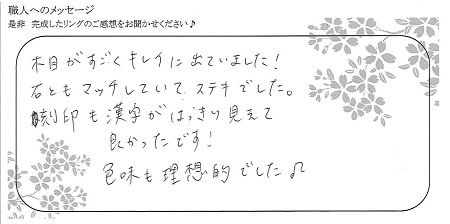 職人へのメッセージ
是非 完成したリングのご感想をお聞かせください♪
木目がすごくキレイに出ていました!
石ともマッチしていて、ステキでした。
刻印も漢字がはっきり見えて
良かったです!
色味も理想的でした♫